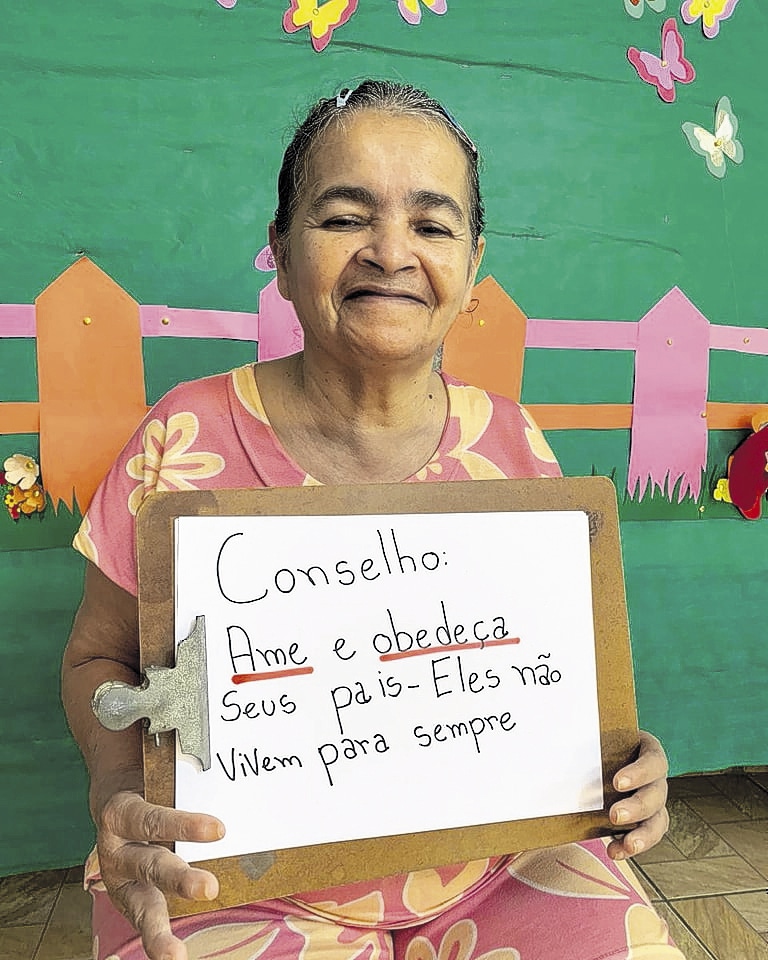 Conselho:
Ame e obedeça
Seus pais - Eles não
Vivem para sempre